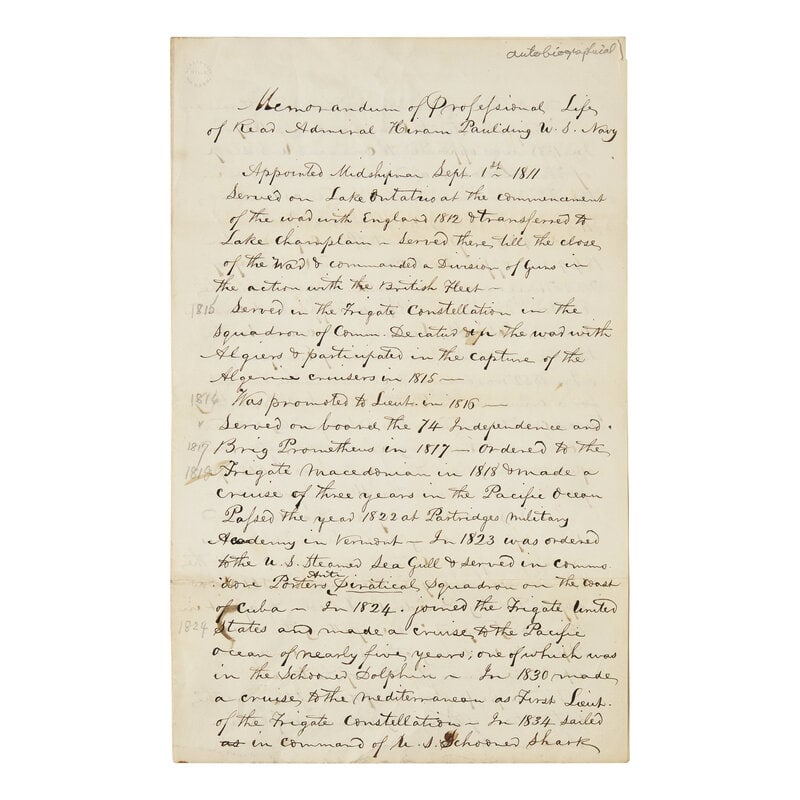 autobiographical
Memorandum of Professional Life
of Rear Admiral Hiram Paulding U. S. Navy
Appointed Midshipman Sept. 1st 1811
Served on Lake Ontario at the commencement
of the war with England 1812 & transferred to
Lake Champlain – Served there, till the close
of the War & commanded a Division of Guns in
the action with the British Fleet –
1815 Served in the Frigate Constellation in the
Squadron of Comm. Decatur in the war with
Algiers & participated in the capture of the
Algerine cruisers in 1815 –
1816 Was promoted to Lieut. in 1816 –
Served on board the 74 Independence and
1817 Brig Prometheus in 1817 – Ordered to the
1818 Frigate Macedonian in 1818 & made a
cruise of three years in the Pacific Ocean
Passed the year 1822 at Partridges Military
Academy in Vermont – In 1823 was ordered
to the U. S. Steamer Sea Gull & served in Commo
dore Porters Anti Piratical Squadron on the coast
of Cuba – In 1824. joined the Frigate United
1824 States and made a cruise to the Pacific
Ocean of nearly five years; one of which was
in the Schooner Dolphin – In 1830 made
a cruise to the Mediterranean as First Lieut.
of the Frigate Constellation – In 1834 sailed
as in command of U. S. Schooner Shark